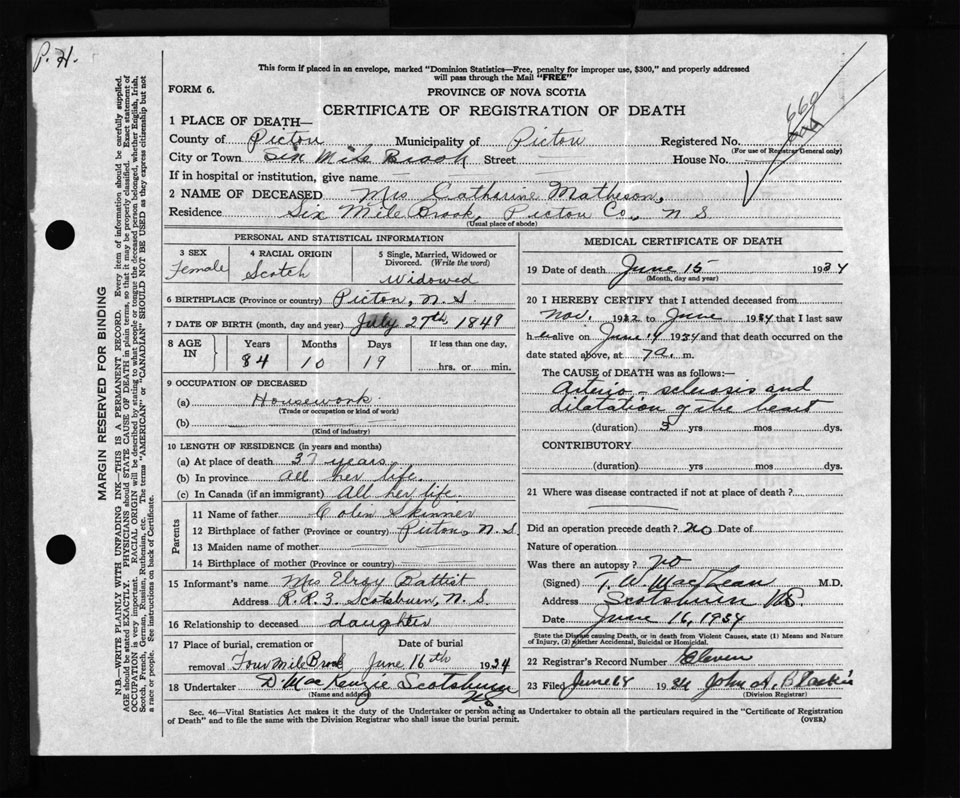 P. H.
This form if placed in an envelope, marked "Dominion Statistics—Free, penalty for improper use, $300," and properly addressed
will pass through the Mail "FREE"
FORM 6.
PROVINCE OF NOVA SCOTIA
CERTIFICATE OF REGISTRATION OF DEATH
660
1 PLACE OF DEATH—
County of Pictou Municipality of Pictou Registered No.
(For use of Registrar General only)
City or Town Six Mile Brook Street House No.
If in hospital or institution, give name
2 NAME OF DECEASED Mrs Catharine Matheson,
Residence Six Mile Brook, Pictou Co., N S
(Usual place of abode)
MARGIN RESERVED FOR BINDING
N.B.—WRITE PLAINLY WITH UNFADING INK—THIS IS A PERMANENT RECORD. Every item of information should be carefully supplied.
AGE should be stated EXACTLY. PHYSICIANS should STATE CAUSE OF DEATH in plain terms, so that it may be properly classified. Exact statement of
OCCUPATION is very important. RACIAL ORIGIN will be described by stating to what people or tongue the deceased person belonged, whether English, Irish,
Scotch, French, German, Russian, Ruthenian, etc. The terms "AMERICAN" or "CANADIAN" SHOULD NOT BE USED as they express citizenship but not
a race or people. See instructions on back of Certificate.
PERSONAL AND STATISTICAL INFORMATION
3 SEX
Female
4 RACIAL ORIGIN
Scotch
5 Single, Married, Widowed or
Divorced. (Write the word)
Widowed
6 BIRTHPLACE (Province or country) Pictou, N. S.
7 DATE OF BIRTH (month, day and year) July 27th 1849
8 AGE IN
Years Months Days If less than one day,
84 10 19 hrs. or min.
9 OCCUPATION OF DECEASED
(a) Housework
(Trade or occupation or kind of work)
(b)
(Kind of industry)
10 LENGTH OF RESIDENCE (in years and months)
(a) At place of death 37 years
(b) In province all her life.
(c) In Canada (if an immigrant) All her life.
Parents
11 Name of father Colin Skinner
12 Birthplace of father (Province or country) Pictou, N. S
13 Maiden name of mother
14 Birthplace of mother (Province or country)
15 Informant's name Mrs Elroy Battist
Address R. R. 3. Scotsburn, N. S.
16 Relationship to deceased daughter
17 Place of burial, cremation or Date of burial
removal Four Mile Brook June 16th 1934
18 Undertaker D. MacKenzie Scotsburn
N.S.
(Name and address)
MEDICAL CERTIFICATE OF DEATH
19 Date of death June 15 1934
(Month, day and year)
20 I HEREBY CERTIFY that I attended deceased from
Nov. 1932 to June 1934 that I last saw
h er alive on June 14 1934 and that death occurred on the
date stated above, at 7 a. m.
The CAUSE of DEATH was as follows:—
Arterio-sclerosis and
dilatation of the heart
(duration) 3 yrs mos dys.
CONTRIBUTORY
(duration) yrs. mos. dys.
21 Where was disease contracted if not at place of death?
Did an operation precede death? no Date of
Nature of operation
Was there an autopsy? no
(Signed) T. W. MacLean M.D.
Address Scotsburn N.S.
Date June 16, 1934
State the Disease causing Death, or in death from Violent Causes, state (1) Means and Nature
of Injury, (2) whether Accidental, Suicidal or Homicidal.
22 Registrar's Record Number Eleven
23 Filed June 1934 John H.
(Division Registrar)
Sec. 46—Vital Statistics Act makes it the duty of the Undertaker or person acting as Undertaker to obtain all the particulars required in the "Certificate of Registration
of Death" and to file the same with the Division Registrar who shall issue the burial permit.
(OVER)